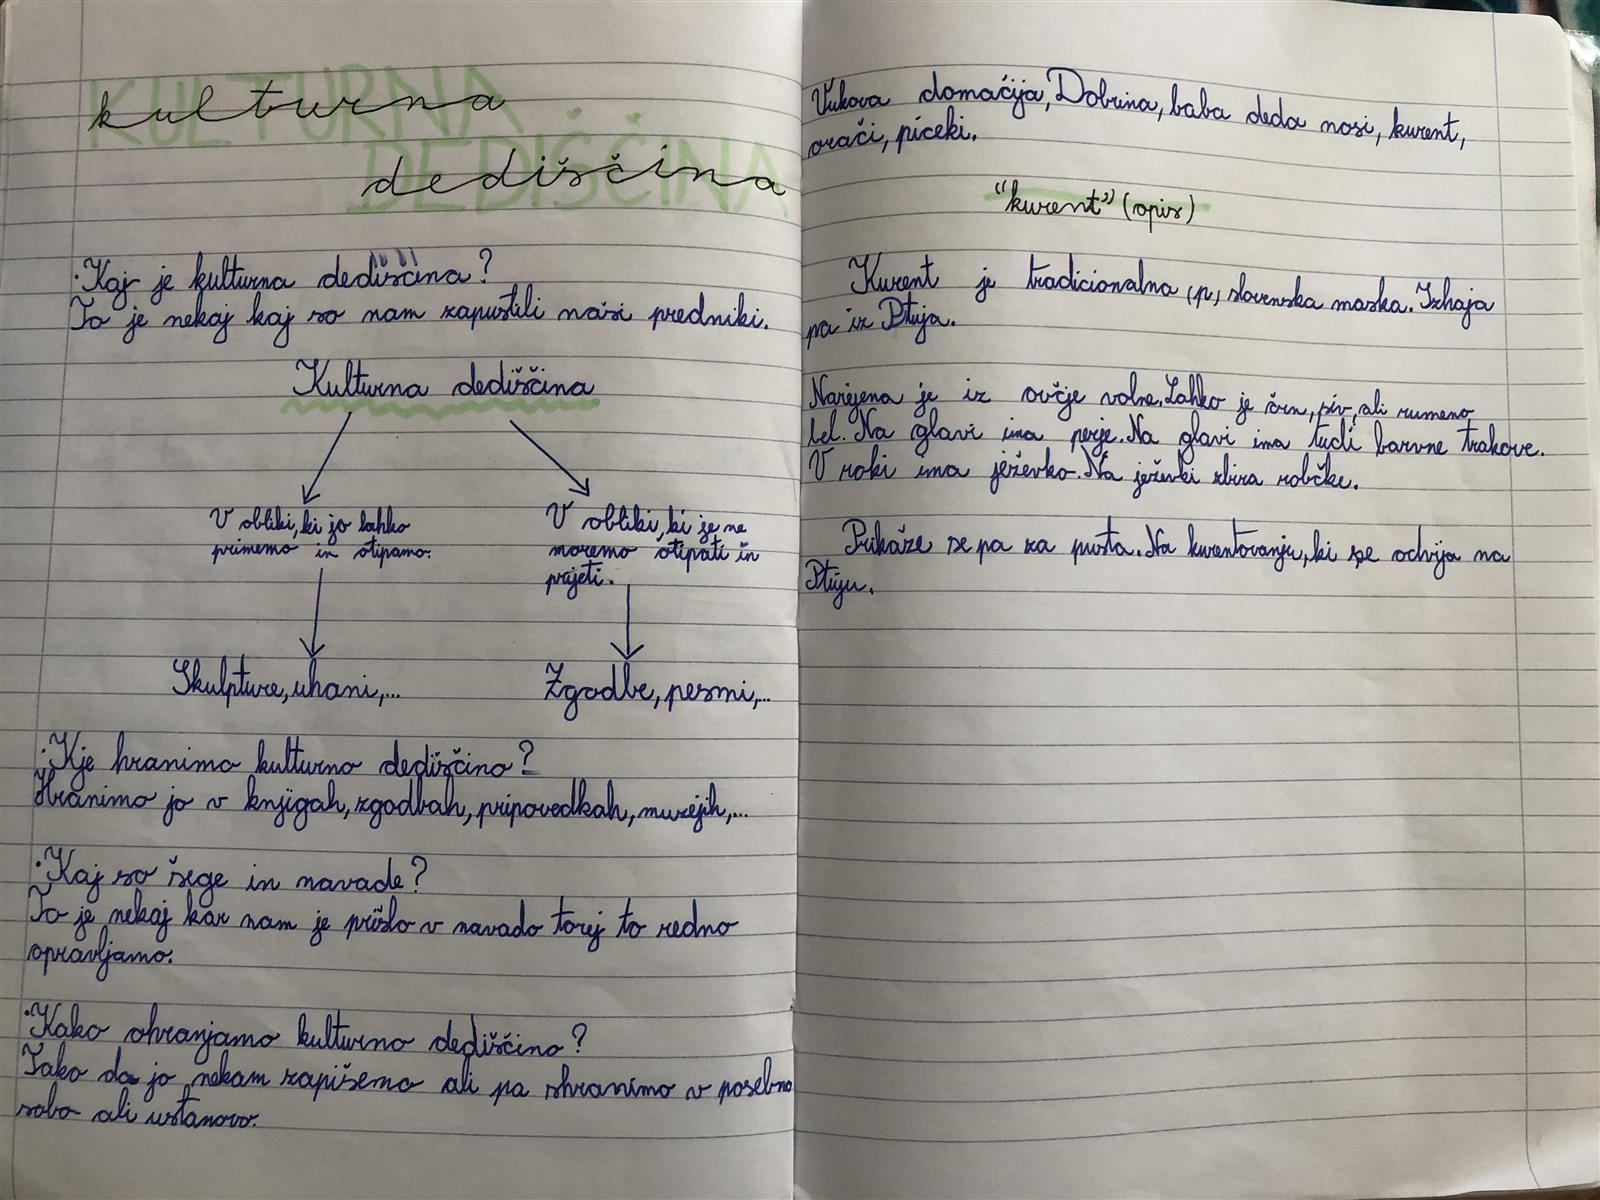 KULTURNA
DEDIŠČINA
kulturna
dediščina
·Kaj je kulturna dediščina?
To je nekaj kaj so nam zapustili naši predniki.
Kulturna dediščina
V obliki, ki jo lahko
primemo in otipamo.
V obliki, ki je ne
moremo otipati in
prijeti.
Skulpture, uhani,...
Zgodbe, pesmi,...
·Kje hranimo kulturno dediščino?
Hranimo jo v knjigah, zgodbah, pripovedkah, muzejih,...
·Kaj so šege in navade?
To je nekaj kar nam je prišlo v navado torej to redno
opravljamo.
·Kako ohranjamo kulturno dediščino?
Tako da jo nekam zapišemo ali pa shranimo v posebno
sobo ali ustanovo.
Vukova domačija, Dobrina, baba deda nosi, kurent,
orači, piceki.
"kurent" (opis)
Kurent je tradicionalna (p) slovenska maska. Izhaja
pa iz Ptuja.
Narejena je iz ovčje volne. Lahko je črn, siv, ali rumeno
bel. Na glavi ima perje. Na glavi ima tudi barvne trakove.
V roki ima ježevko. Na ježevki zbira robčke.
Prikaže se pa za pusta. Na kurentovanju, ki se odvija na
Ptuju.